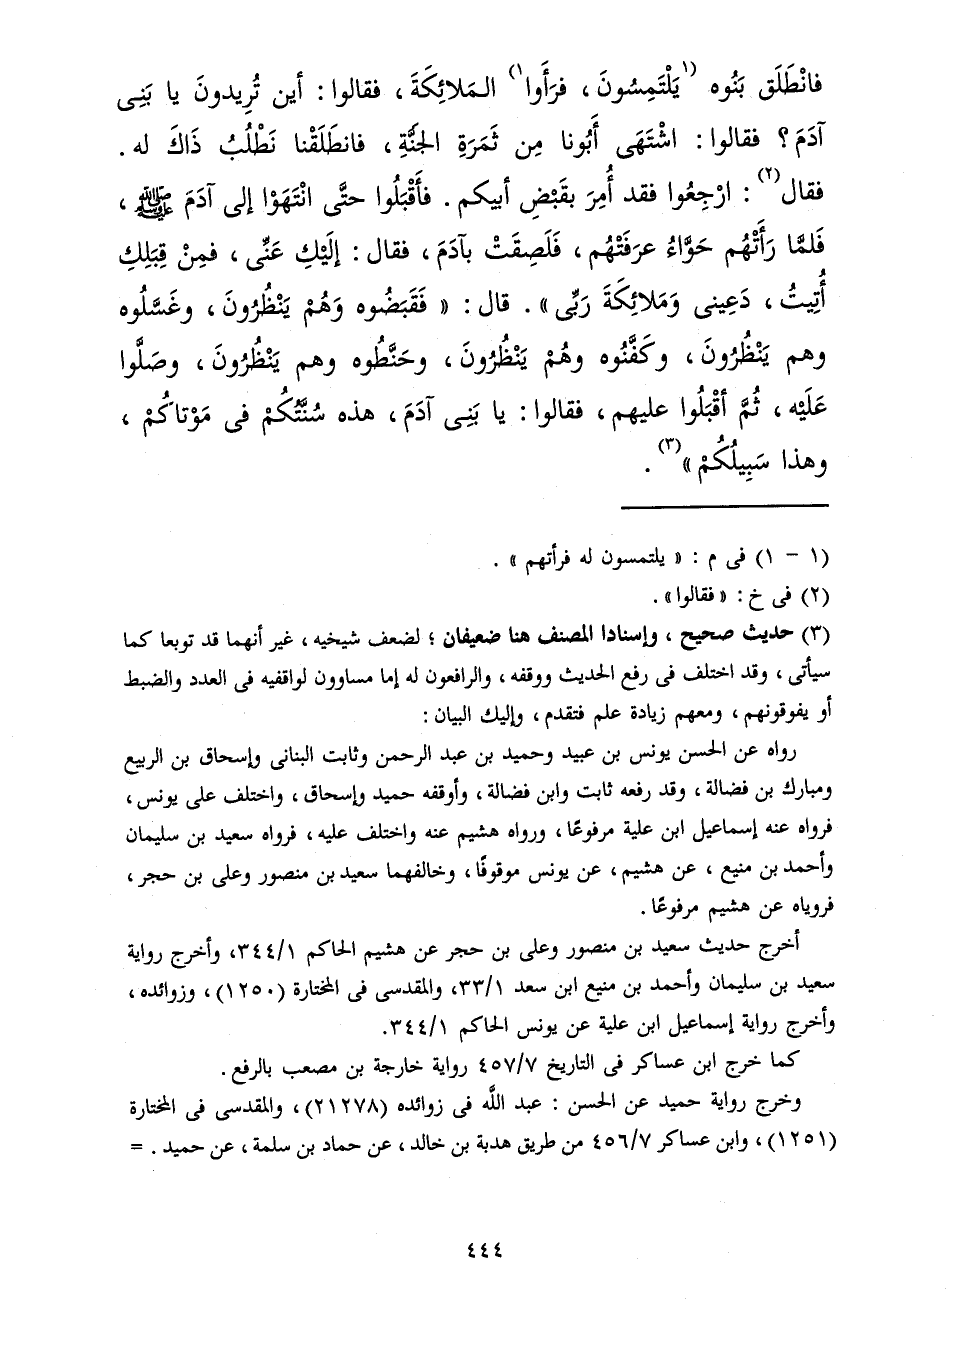 فانْطَلَق بَنُوه (١يَلْتَمِسُونَ ، فرَأَوا١) المَلائِكَةَ ، فقالوا : أين تُرِيدونَ يا بَنِى
آدَمَ ؟ فقالوا : اشْتَهَى أَبُونا مِن ثَمَرَةِ الجَنَّةِ ، فانطَلَقْنا نَطْلُبُ ذَاكَ له .
فقال(٢) : ارْجِعُوا فقد أُمِرَ بقَبْضِ أبيكم . فأَقْبَلُوا حتَّى انْتَهَوْا إلى آدَمَ ﷺ ،
فَلمَّا رَأَتْهُم حَوَّاءُ عرَفَتْهُم ، فَلَصِقَتْ بآدَمَ ، فقال : إلَيْكِ عَنِّى ، فمِنْ قِبَلِكِ
أُتِيتُ ، دَعِينى وَمَلائِكَةَ رَبِّى » . قال : « فَقَبَضُوه وَهُم يَنْظُرُونَ ، وغَسَّلُوه
وهم يَنْظُرُونَ ، وكَفَّنُوه وهُمْ يَنْظُرُونَ ، وحَنَّطُوه وهم يَنْظُرُونَ ، وصَلَّوا
عَلَيْه ، ثُمَّ أقْبَلُوا عليهم ، فقالوا : يا بَنِى آدَمَ ، هذه سُنَّتُكُمْ فى مَوْتاكُمْ ،
وهذا سَبِيلُكُمْ »(٣) .
(١ - ١) فى م : « يلتمسون له فرأتهم » .
(٢) فى خ : « فقالوا » .
(٣) حديث صحيح ، وإسنادا المصنف هنا ضعيفان ؛ لضعف شيخيه ، غير أنهما قد توبعا كما
سيأتى ، وقد اختلف فى رفع الحديث ووقفه ، والرافعون له إما مساوون لواقفيه فى العدد والضبط
أو يفوقونهم ، ومعهم زيادة علم فتقدم ، وإليك البيان :
رواه عن الحسن يونس بن عبيد وحميد بن عبد الرحمن وثابت البنانى وإسحاق بن الربيع
ومبارك بن فضالة ، وقد رفعه ثابت وابن فضالة ، وأوقفه حميد وإسحاق ، واختلف على يونس ،
فرواه عنه إسماعيل ابن علية مرفوعًا ، ورواه هشيم عنه واختلف عليه ، فرواه سعيد بن سليمان
وأحمد بن منيع ، عن هشيم ، عن يونس موقوفًا ، وخالفهما سعيد بن منصور وعلى بن حجر ،
فروياه عن هشيم مرفوعًا .
أخرج حديث سعيد بن منصور وعلى بن حجر عن هشيم الحاكم ٣٤٤/١ ، وأخرج رواية
سعيد بن سليمان وأحمد بن منيع ابن سعد ٣٣/١ ، والمقدسى فى المختارة (١٢٥٠) ، وزوائده ،
وأخرج رواية إسماعيل ابن علية عن يونس الحاكم ٣٤٤/١ .
كما خرج ابن عساكر فى التاريخ ٤٥٧/٧ رواية خارجة بن مصعب بالرفع .
وخرج رواية حميد عن الحسن : عبد اللَّه فى زوائده (٢١٢٧٨) ، والمقدسى فى المختارة
(١٢٥١) ، وابن عساكر ٤٥٦/٧ من طريق هدبة بن خالد ، عن حماد بن سلمة ، عن حميد . =
٤٤٤